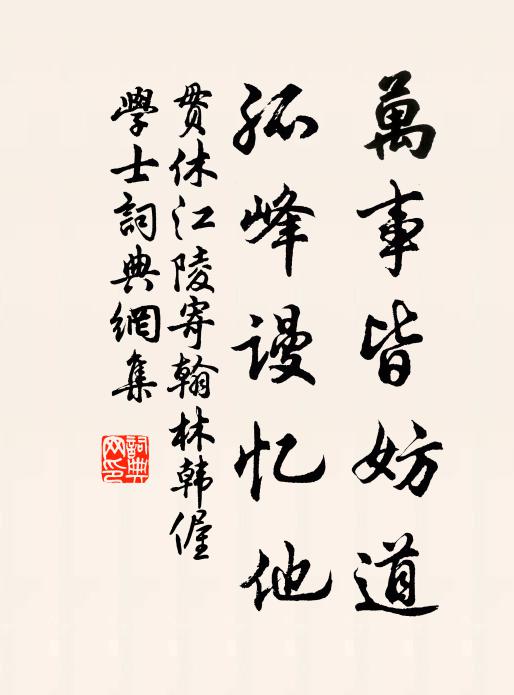 萬事皆妨道
孤峰謾忆他
贯休江陵寄翰林韩偓
學士詞典網集
詞典网印